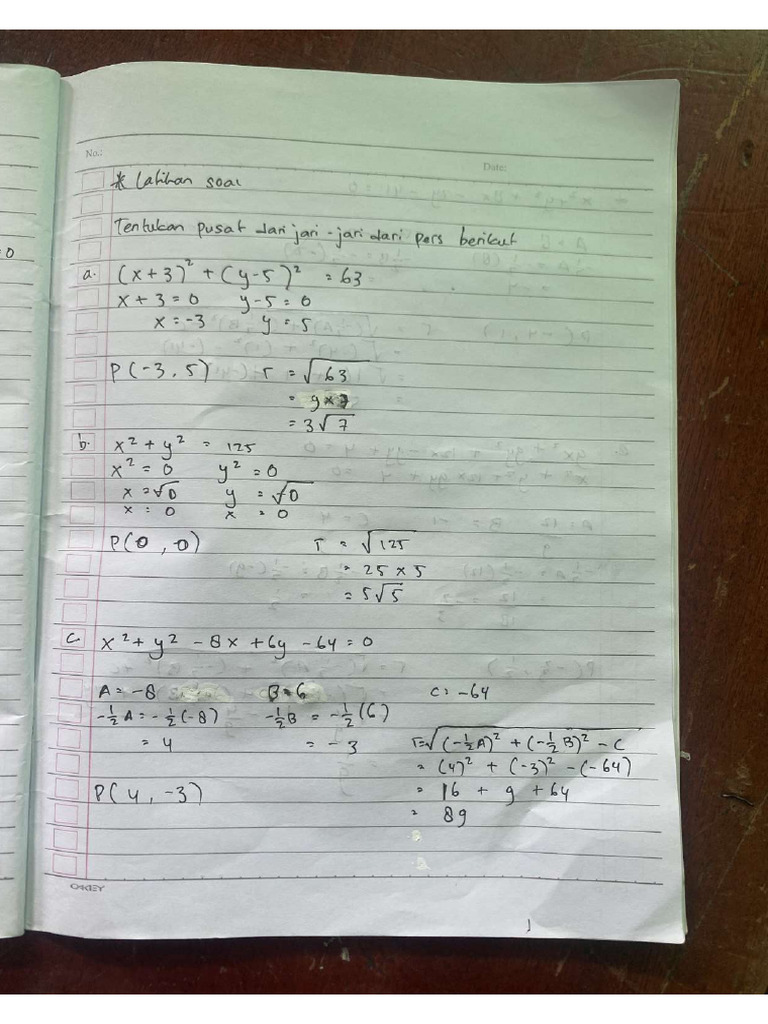 No.:
Date:
* Latihan soal
Tentukan pusat dari jari-jari dari pers berikut
= 0
a. (x+3)² + (y-5)² = 63
x + 3 = 0 y-5 = 0
x = -3 y = 5
P(-3, 5) r = √63
= 9 x 7
= 3√7
b. x² + y² = 125
x² = 0 y² = 0
x = √0 y = √0
x = 0 x = 0
P(0, 0) r = √125
= 25 x 5
= 5√5
c. x² + y² - 8x + 6y - 64 = 0
A = -8 B = 6 C = -64
-½A = -½(-8) -½B = -½(6)
= 4 = -3 r = √(-½A)² + (-½B)² - C
= (4)² + (-3)² - (-64)
P(4, -3) = 16 + 9 + 64
= 89
OKEY